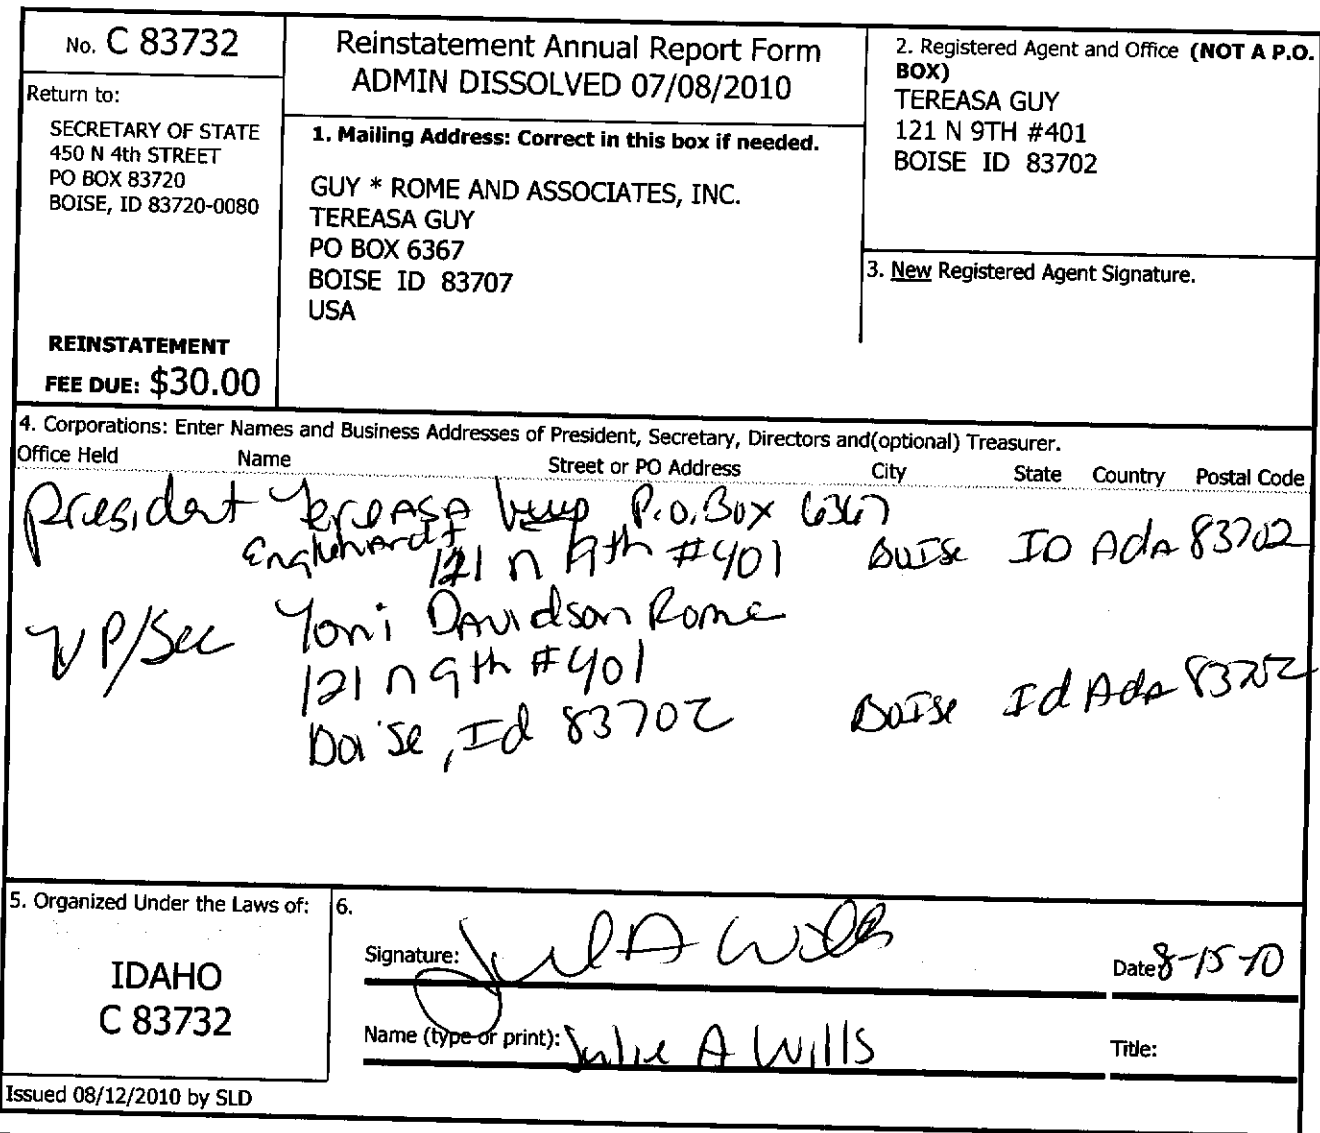 No. C 83732
Return to:
SECRETARY OF STATE
450 N 4th STREET
PO BOX 83720
BOISE, ID 83720-0080
REINSTATEMENT
FEE DUE: $30.00
Reinstatement Annual Report Form
ADMIN DISSOLVED 07/08/2010
1. Mailing Address: Correct in this box if needed.
GUY * ROME AND ASSOCIATES, INC.
TEREASA GUY
PO BOX 6367
BOISE ID 83707
USA
2. Registered Agent and Office (NOT A P.O.
BOX)
TEREASA GUY
121 N 9TH #401
BOISE ID 83702
3. New Registered Agent Signature.
4. Corporations: Enter Names and Business Addresses of President, Secretary, Directors and(optional) Treasurer.
Office Held Name Street or PO Address City State Country Postal Code
President Tereasa P.O. Box 6367
Englehardt 121 n 9th #401 BOISe ID Ada 83702
VP/Sec Toni Davidson Rome
121 n 9th #401
Boise, Id 83702 BOISe Id Ada 83702
5. Organized Under the Laws of:
IDAHO
C 83732
6.
Signature: Julie A Wills Date: 8-15-10
Name (type or print): Julie A Wills Title:
Issued 08/12/2010 by SLD